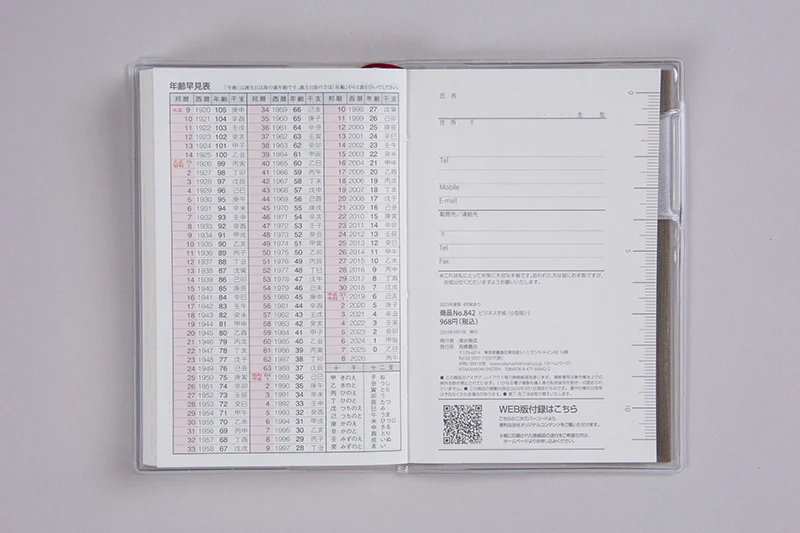 年齢早見表
邦暦 西暦 年齢 干支 邦暦 西暦 年齢 干支 邦暦 西暦 年齢 干支
9 1920 105 庚申 34 1959 66 己亥 10 1998 27 戊寅
10 1921 104 辛酉 35 1960 65 庚子 11 1999 26 己卯
11 1922 103 壬戌 36 1961 64 辛丑 12 2000 25 庚辰
12 1923 102 癸亥 37 1962 63 壬寅 13 2001 24 辛巳
13 1924 101 甲子 38 1963 62 癸卯 14 2002 23 壬午
14 1925 100 乙丑 39 1964 61 甲辰 15 2003 22 癸未
1926 99 丙寅 40 1965 60 乙巳 16 2004 21 甲申
2 1927 98 丁卯 41 1966 59 丙午 17 2005 20 乙酉
3 1928 97 戊辰 42 1967 58 丁未 18 2006 19 丙戌
4 1929 96 己巳 43 1968 57 戊申 19 2007 18 丁亥
5 1930 95 庚午 44 1969 56 己酉 20 2008 17 戊子
6 1931 94 辛未 45 1970 55 庚戌 21 2009 16 己丑
7 1932 93 壬申 46 1971 54 辛亥 22 2010 15 庚寅
8 1933 92 癸酉 47 1972 53 壬子 23 2011 14 辛卯
9 1934 91 甲戌 48 1973 52 癸丑 24 2012 13 壬辰
10 1935 90 乙亥 49 1974 51 甲寅 25 2013 12 癸巳
11 1936 89 丙子 50 1975 50 乙卯 26 2014 11 甲午
12 1937 88 丁丑 51 1976 49 丙辰 27 2015 10 乙未
13 1938 87 戊寅 52 1977 48 丁巳 28 2016 9 丙申
14 1939 86 己卯 53 1978 47 戊午 29 2017 8 丁酉
15 1940 85 庚辰 54 1979 46 己未 30 2018 7 戊戌
16 1941 84 辛巳 55 1980 45 庚申 2019 6 己亥
17 1942 83 壬午 56 1981 44 辛酉 2 2020 5 庚子
18 1943 82 癸未 57 1982 43 壬戌 3 2021 4 辛丑
19 1944 81 甲申 58 1983 42 癸亥 4 2022 3 壬寅
20 1945 80 乙酉 59 1984 41 甲子 5 2023 2 癸卯
21 1946 79 丙戌 60 1985 40 乙丑 6 2024 1 甲辰
22 1947 78 丁亥 61 1986 39 丙寅 7 2025 0 乙巳
23 1948 77 戊子 62 1987 38 丁卯 8 2026 丙午
24 1949 76 己丑 63 1988 37 戊辰 十干 十二支
25 1950 75 庚寅 1989 36 己巳 甲 きのえ 子 ね
26 1951 74 辛卯 2 1990 35 庚午 乙 きのと 丑 うし
27 1952 73 壬辰 3 1991 34 辛未 丙 ひのえ 寅 とら
28 1953 72 癸巳 4 1992 33 壬申 丁 ひのと 卯 う
29 1954 71 甲午 5 1993 32 癸酉 戊 つちのえ 辰 たつ
30 1955 70 乙未 6 1994 31 甲戌 己 つちのと 巳 み
31 1956 69 丙申 7 1995 30 乙亥 庚 かのえ 午 うま
32 1957 68 丁酉 8 1996 29 丙子 辛 かのと 未 ひつじ
33 1958 67 戊戌 9 1997 28 丁丑 壬 みずのえ 申 さる
癸 みずのと 酉 とり
戌 いぬ
亥 い
氏 名
生 型
住 所 〒
Tel
Mobile
E-mail
勤務先/連絡先
〒
Tel
Fax
※これは私にとって非常に大切な手帳です。拾われた方は誠にお手数ですが、
お知らせくださいますようお願いいたします。
商品No.842 ビジネス手帳〈小型版〉5
968円(税込)
発行者 清水美成
発行所 高橋書店
WEB版付録はこちら
こちらの二次元バーコードより、
便利な会社オリジナルコンテンツをご覧いただけます。
0
5
10